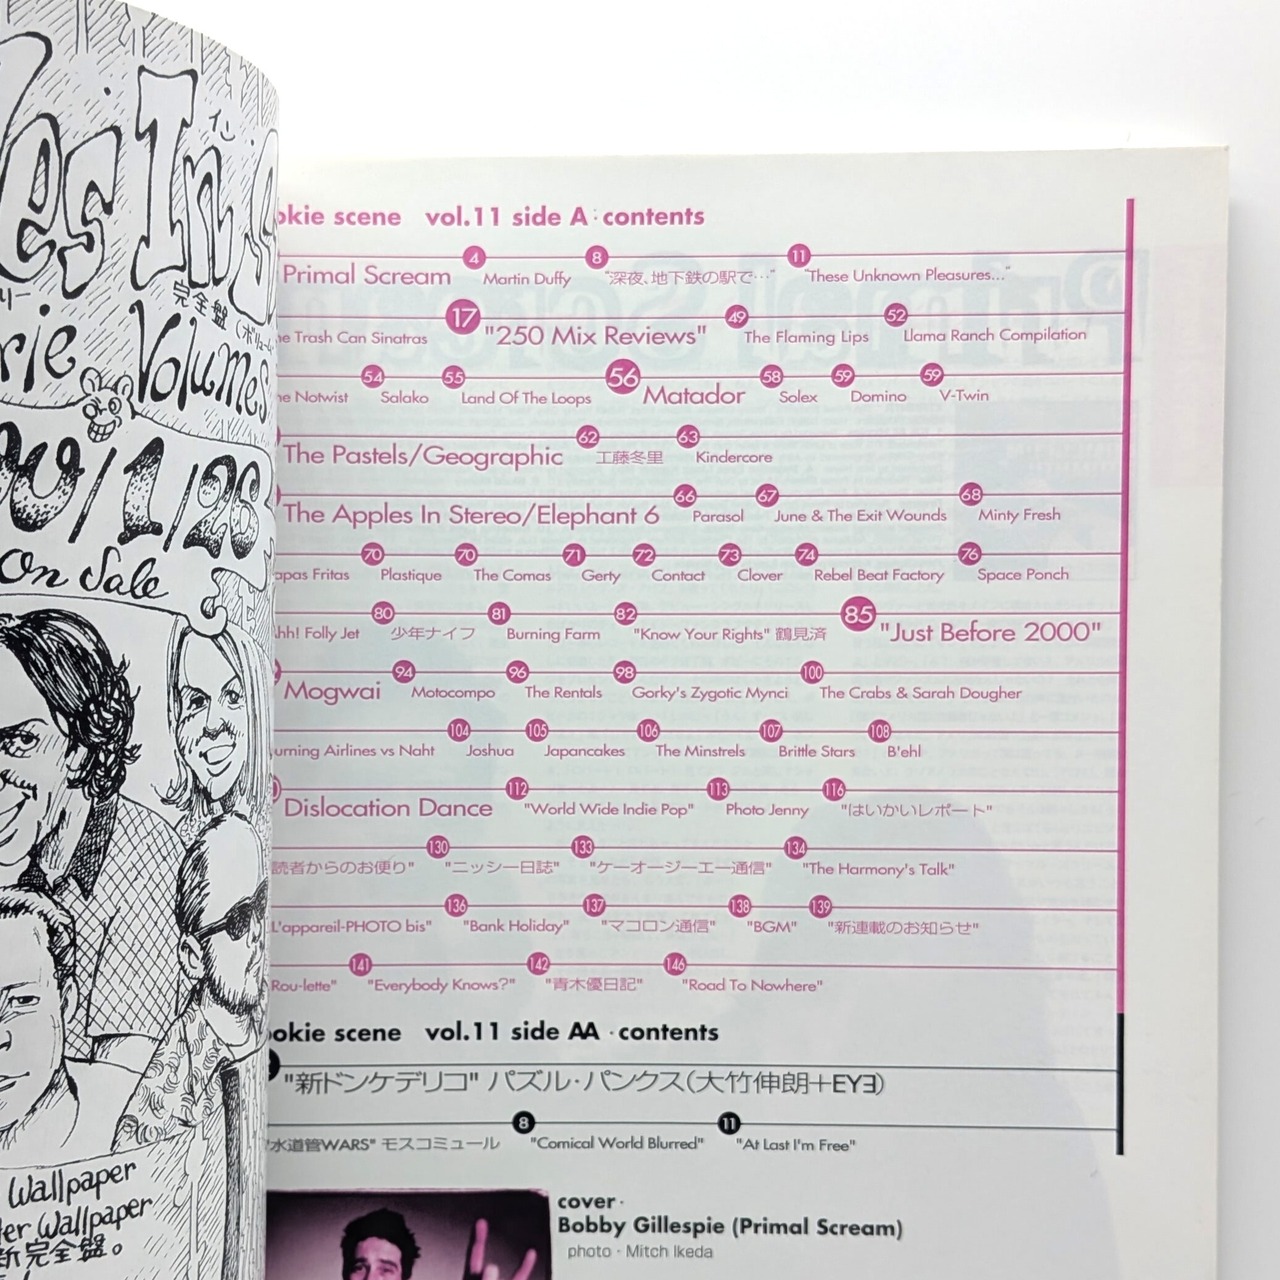 es In g
イン
リー
完全盤(ボリューム
rie Volumes
00/1/26
On Sale
Wallpaper
ter Wallpaper
新完全盤。
okie scene vol.11 side A · contents
4 8 11
Primal Scream Martin Duffy "深夜、地下鉄の駅で…" "These Unknown Pleasures..."
17 49 52
e Trash Can Sinatras "250 Mix Reviews" The Flaming Lips Llama Ranch Compilation
54 55 56 58 59 59
e Notwist Salako Land Of The Loops Matador Solex Domino V-Twin
62 63
The Pastels/Geographic 工藤冬里 Kindercore
66 67 68
The Apples In Stereo/Elephant 6 Parasol June & The Exit Wounds Minty Fresh
70 70 71 72 73 74 76
apas Fritas Plastique The Comas Gerty Contact Clover Rebel Beat Factory Space Ponch
80 81 82 85
hh! Folly Jet 少年ナイフ Burning Farm "Know Your Rights" 鶴見済 "Just Before 2000"
94 96 98 100
Mogwai Motocompo The Rentals Gorky's Zygotic Mynci The Crabs & Sarah Dougher
104 105 106 107 108
urning Airlines vs Naht Joshua Japancakes The Minstrels Brittle Stars B'ehl
112 113 116
Dislocation Dance "World Wide Indie Pop" Photo Jenny "はいかいレポート"
130 133 134
読者からのお便り" "ニッシー日誌" "ケーオージーエー通信" "The Harmony's Talk"
136 137 138 139
L'appareil-PHOTO bis" "Bank Holiday" "マコロン通信" "BGM" "新連載のお知らせ"
141 142 146
Rou-lette" "Everybody Knows?" "青木優日記" "Road To Nowhere"
okie scene vol.11 side AA · contents
"新ドンケデリコ" パズル・パンクス(大竹伸朗+EYヨ)
8 11
"水道管WARS" モスコミュール "Comical World Blurred" "At Last I'm Free"
cover ·
Bobby Gillespie (Primal Scream)
photo · Mitch Ikeda